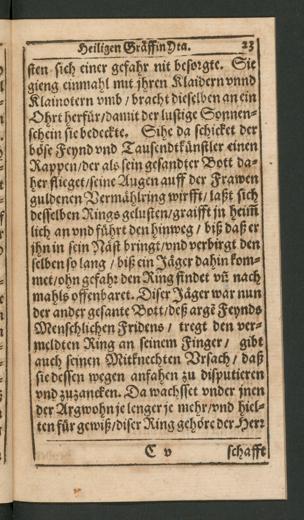 Heiligen Gräffin Yta. 23
sten sich einer gefahr nit besorgte. Sie
gieng einmahl mit jhren Klaidern vnnd
Klainotern vmb / bracht dieselben an ein
Ohrt herfür / damit der lustige Sonnen-
schein sie bedeckte. Sihe da schicket der
böse Feynd vnd Tausendtkünstler einen
Rappen / der als sein gesandter Bott da-
her flieget / seine Augen auff der Frawen
guldenen Vermählring wirfft / laßt sich
desselben Rings gelusten / graifft jn heim̃
lich an vnd führt den hinweg / biß daß er
jhn in sein Näst bringt / vnd verbirgt den
selben so lang / biß ein Jäger dahin kom-
met / ohn gefahr den Ring findet vñ nach
mahls offenbaret. Diser Jäger war nun
der ander gesante Bott / deß argẽ Feynds
Menschlichen Fridens / tregt den ver-
meldten Ring an seinem Finger / gibt
auch seinen Mitknechten Vrsach / daß
sie dessen wegen anfahen zu disputieren
vnd zuzancken. Da wachsset vnder jnen
der Argwohn je lenger je mehr / vnd hiel-
ten für gewiß / diser Ring gehöre der Herr
C v schafft